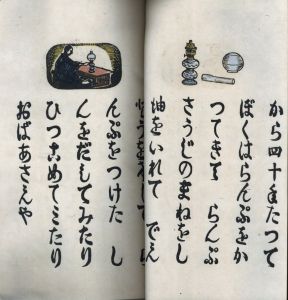 から四十年たつて
ぼくはらんぷをか
つてきて らんぷ
さうじのまねをし
油をいれて でん
んぷをつけた し
んをだしてみたり
ひつこめてみたり
おばあさんや